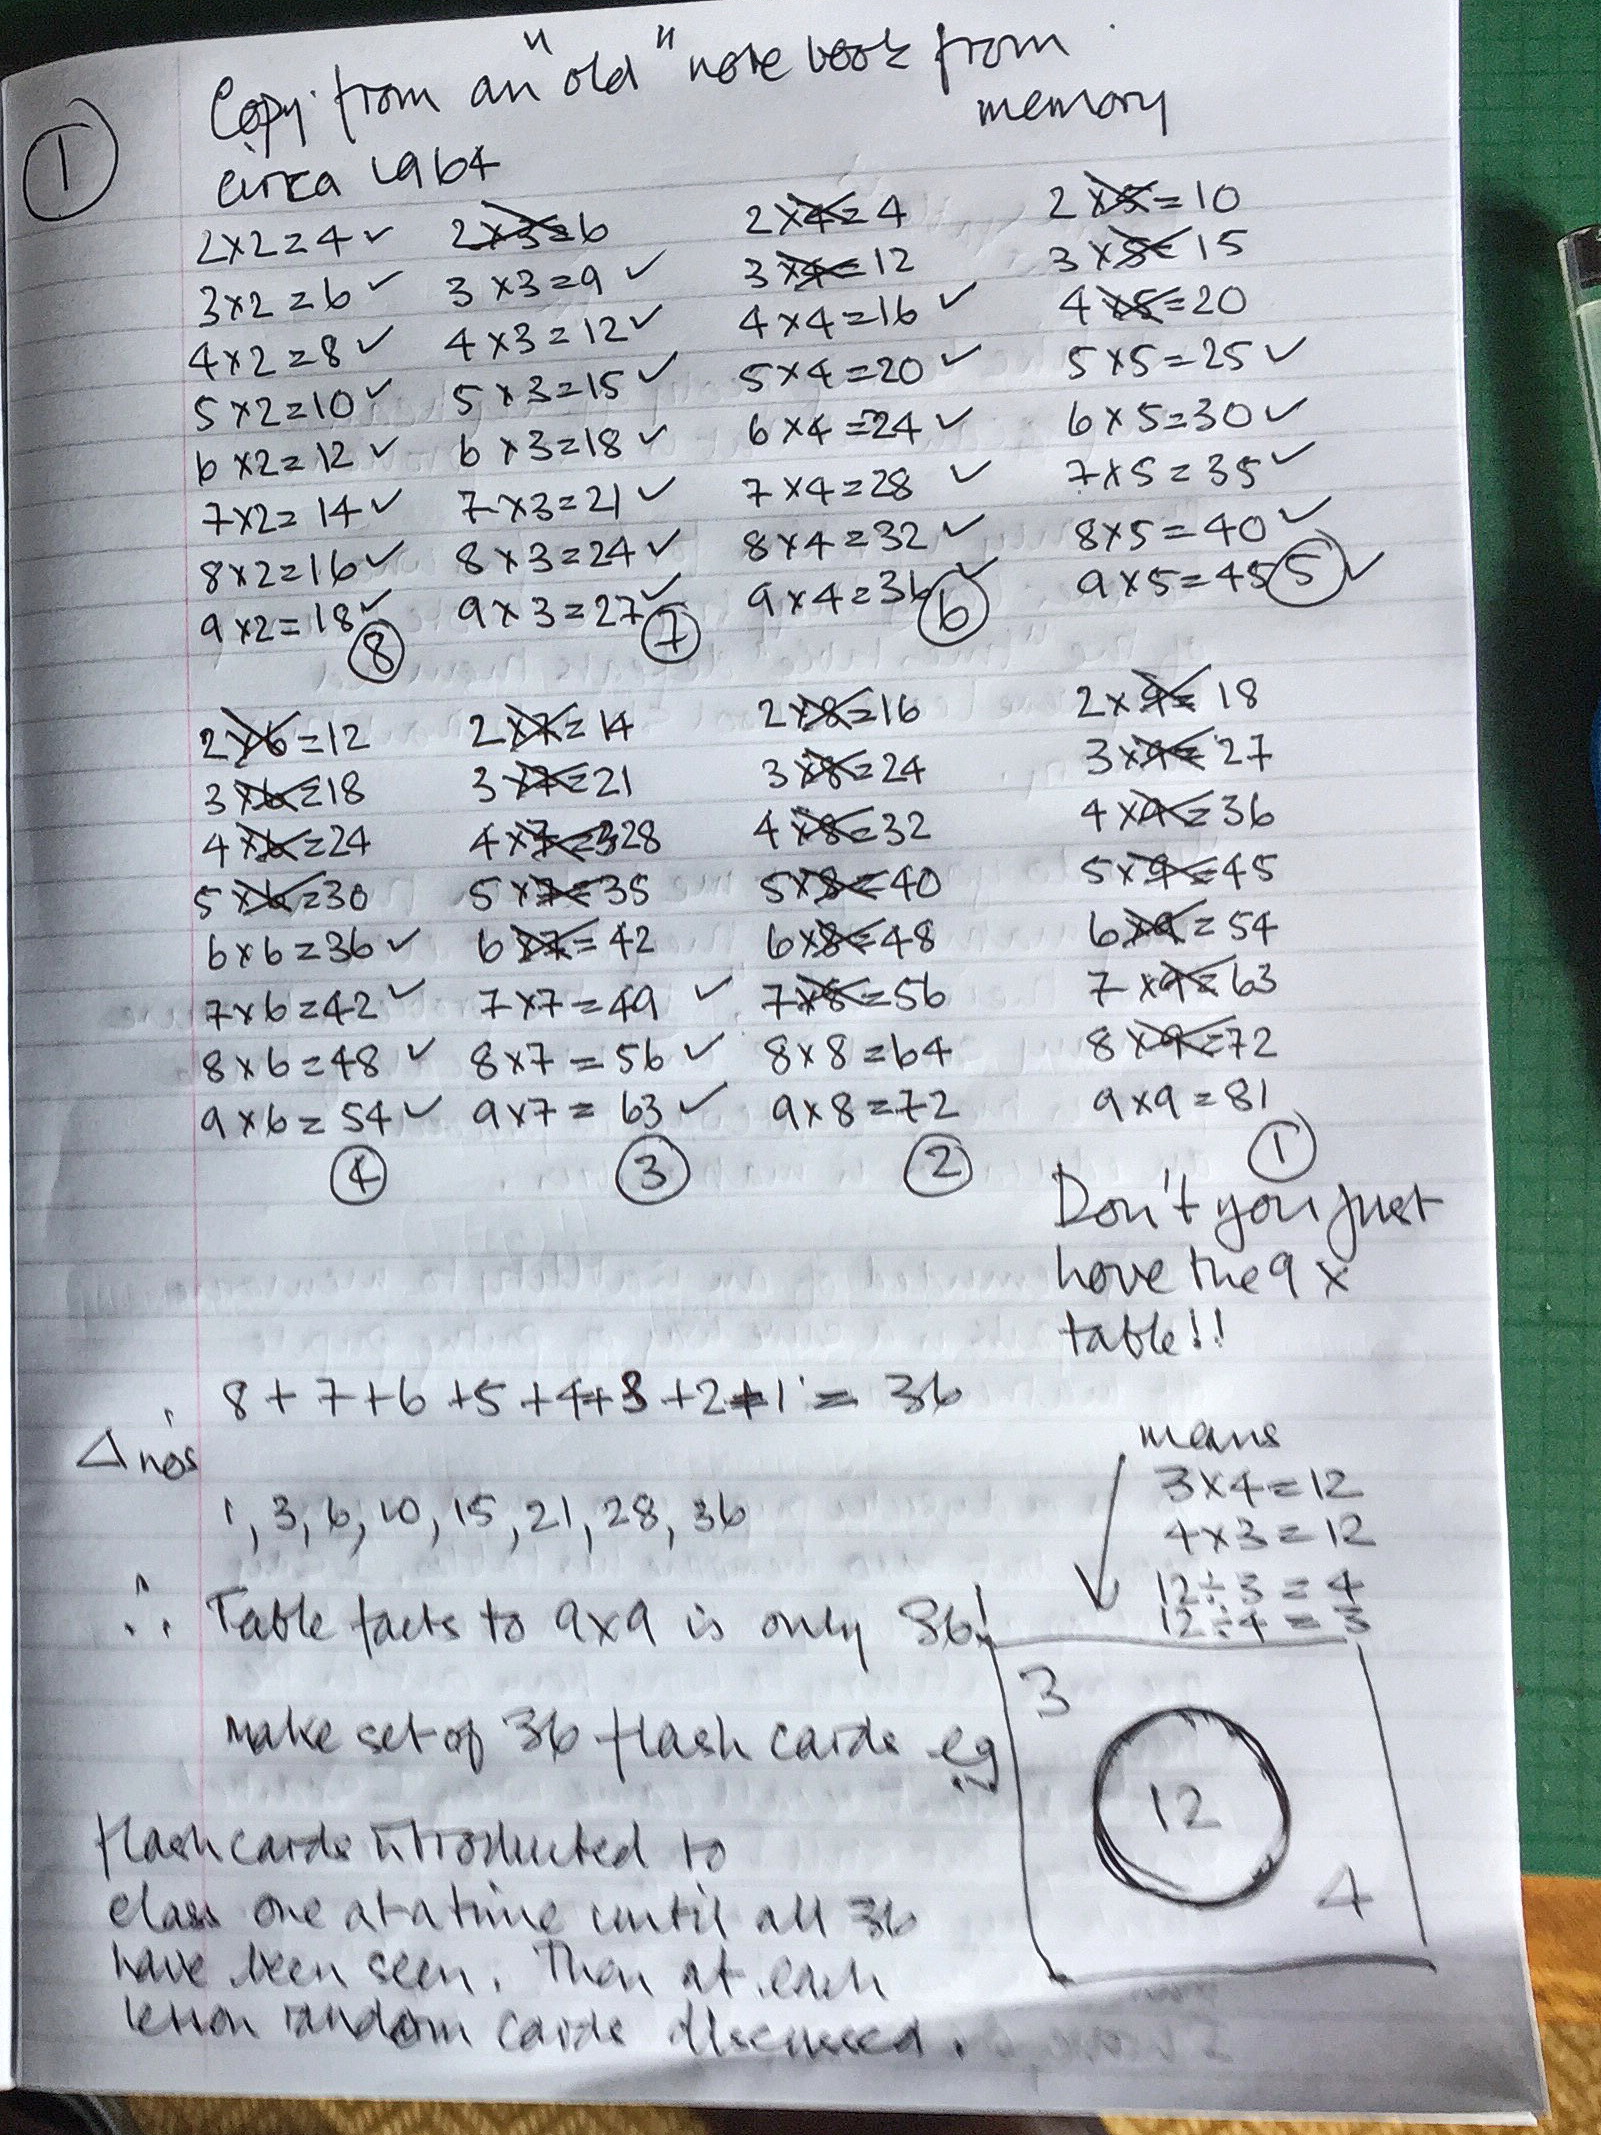 ①
Copy from an "old" note book from
memory
circa 1964
2x2=4 ✓ 2x3=6 2x4=4 2x5=10
3x2=6 ✓ 3x3=9 ✓ 3x4=12 3x5=15
4x2=8 ✓ 4x3=12 ✓ 4x4=16 ✓ 4x5=20
5x2=10 ✓ 5x3=15 ✓ 5x4=20 ✓ 5x5=25 ✓
6x2=12 ✓ 6x3=18 ✓ 6x4=24 ✓ 6x5=30 ✓
7x2=14 ✓ 7x3=21 ✓ 7x4=28 ✓ 7x5=35 ✓
8x2=16 ✓ 8x3=24 ✓ 8x4=32 ✓ 8x5=40 ✓
9x2=18 ✓ 9x3=27 ✓ 9x4=36 ✓ 9x5=45 ✓
⑧ ⑦ ⑥ ⑤
2x6=12 2x7=14 2x8=16 2x9=18
3x6=18 3x7=21 3x8=24 3x9=27
4x6=24 4x7=28 4x8=32 4x9=36
5x6=30 5x7=35 5x8=40 5x9=45
6x6=36 ✓ 6x7=42 6x8=48 6x9=54
7x6=42 ✓ 7x7=49 ✓ 7x8=56 7x9=63
8x6=48 ✓ 8x7=56 ✓ 8x8=64 8x9=72
9x6=54 ✓ 9x7=63 ✓ 9x8=72 9x9=81
④ ③ ② ①
Don't you just
love the 9x
table!!
8+7+6+5+4+3+2+1=36
△nos
1, 3, 6, 10, 15, 21, 28, 36
means
3x4=12
4x3=12
12÷3=4
12÷4=3
∴ Table facts to 9x9 is only 36!
make set of 36 flash cards eg
3
12
4
flash cards introducted to
class one at a time until all 36
have been seen. Then at each
lesson random cards discussed.